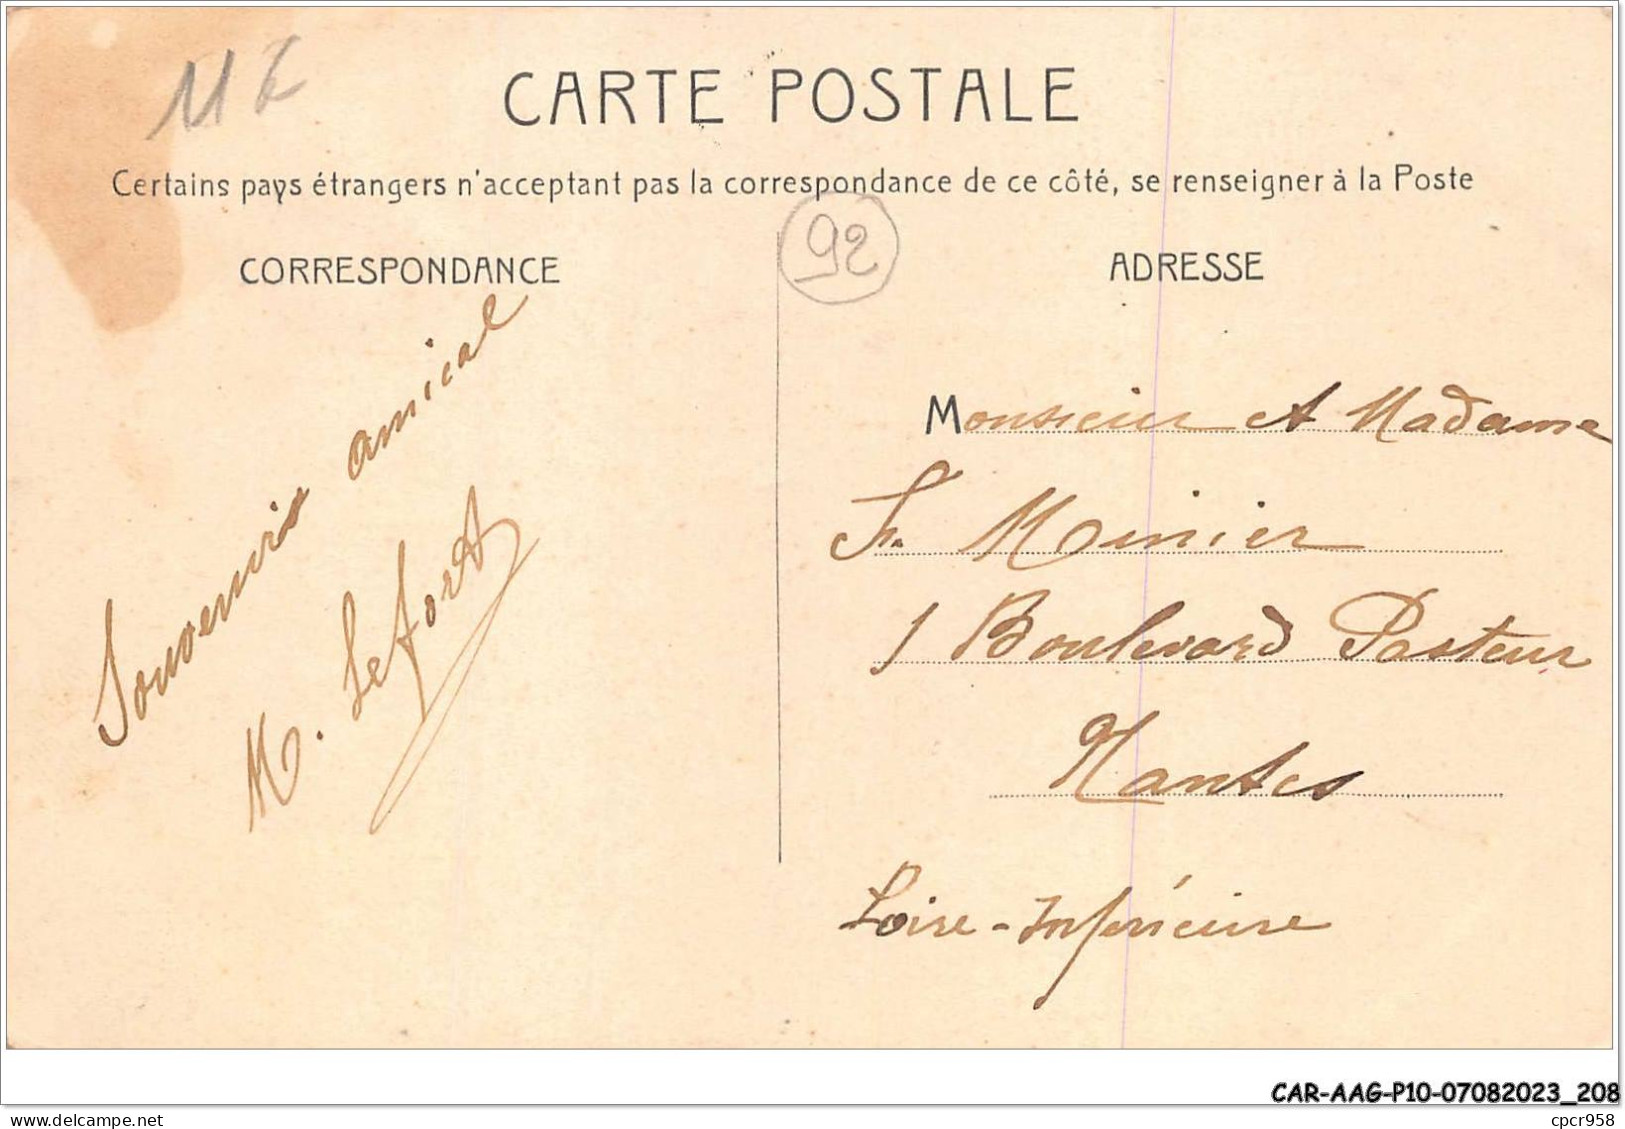 CARTE POSTALE
Certains pays étrangers n'acceptant pas la correspondance de ce côté, se renseigner à la Poste
92
CORRESPONDANCE
Souvenir amical
M. Lefort
ADRESSE
Monsieur et Madame
Fr. Minier
1 Boulevard Pasteur
Nantes
Loire-Inférieure
CAR-AAG-P10-07082023_208
cpcr958